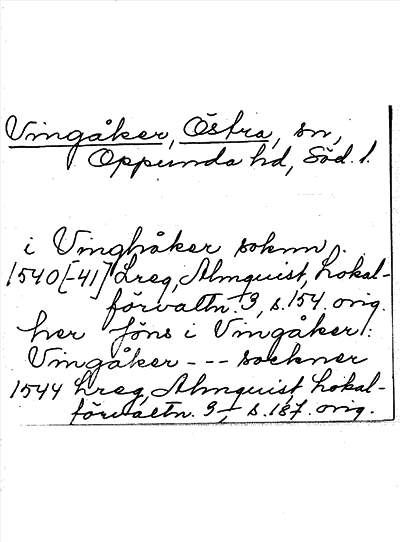 Vingåker, Östra, sn,
Oppunda hd, Söd. l.
i Vinghåker soknn).
1540[-41] Lreg, Almquist, Lokal-
förvaltn. 3, s. 154. orig.
her Jöns i Vingåker:
Vingåker --- sockner
1544 Lreg, Almquist, Lokal-
förvaltn. 3, s. 187. orig.